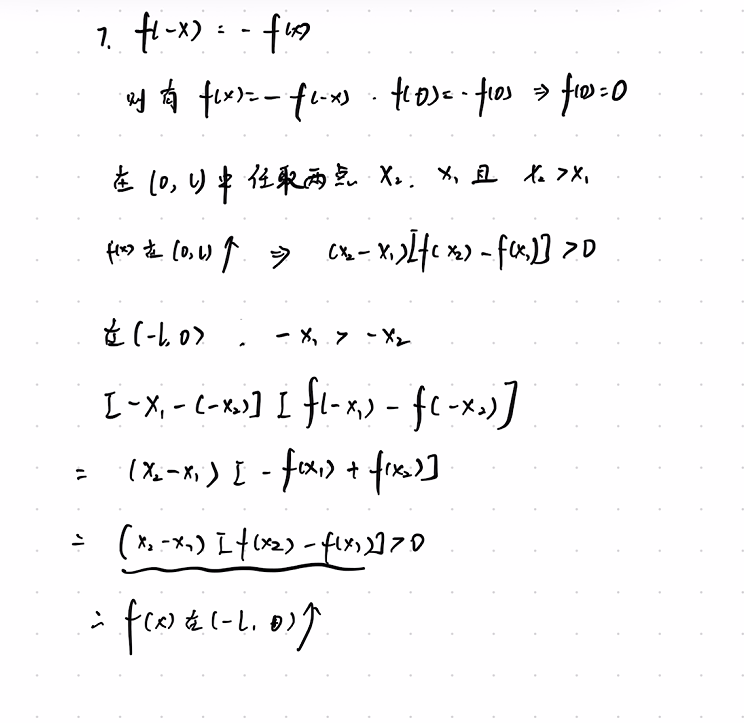 7. f(-x) = - f(x)
则有 f(x)=- f(-x) . f(0)=- f(0) ⇒ f(0)=0
在 (0, l) 中 任取两点 x₂. x₁ 且 x₂ >x₁
f(x) 在 (0,l)↑ ⇒ (x₂-x₁)[f(x₂)-f(x₁)]>0
在(-l,0) . -x₁ > -x₂
[-x₁-(-x₂)] [f(-x₁)-f(-x₂)]
= (x₂-x₁) [-f(x₁)+f(x₂)]
= (x₂-x₁) [f(x₂)-f(x₁)]>0
∴ f(x) 在(-l, 0)↑